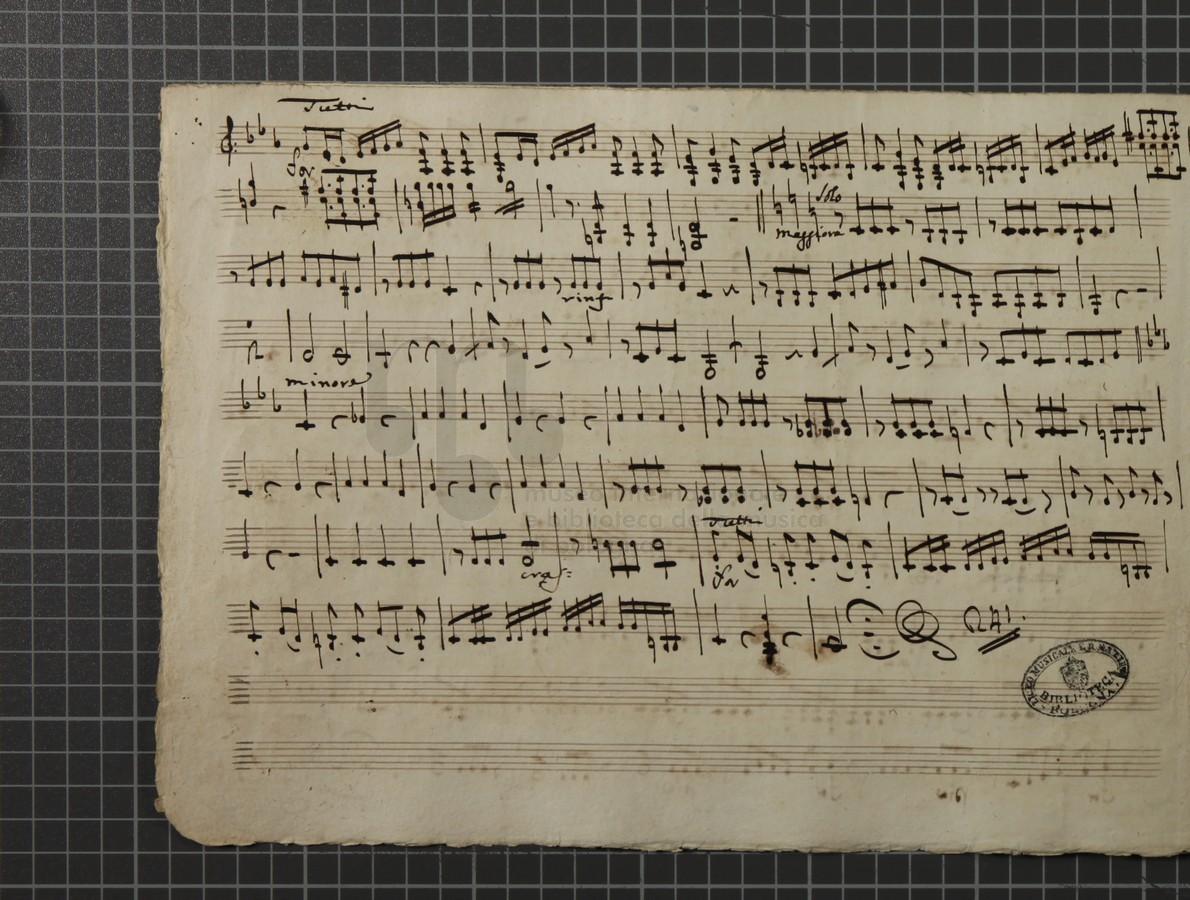 Tutti
For
Solo
maggiore
rinf
minore
museo internazionale
e biblioteca della musica
Tutti
cres:
For
LICEO MUSICALE
BIBLIOTECA
BOLOGNA